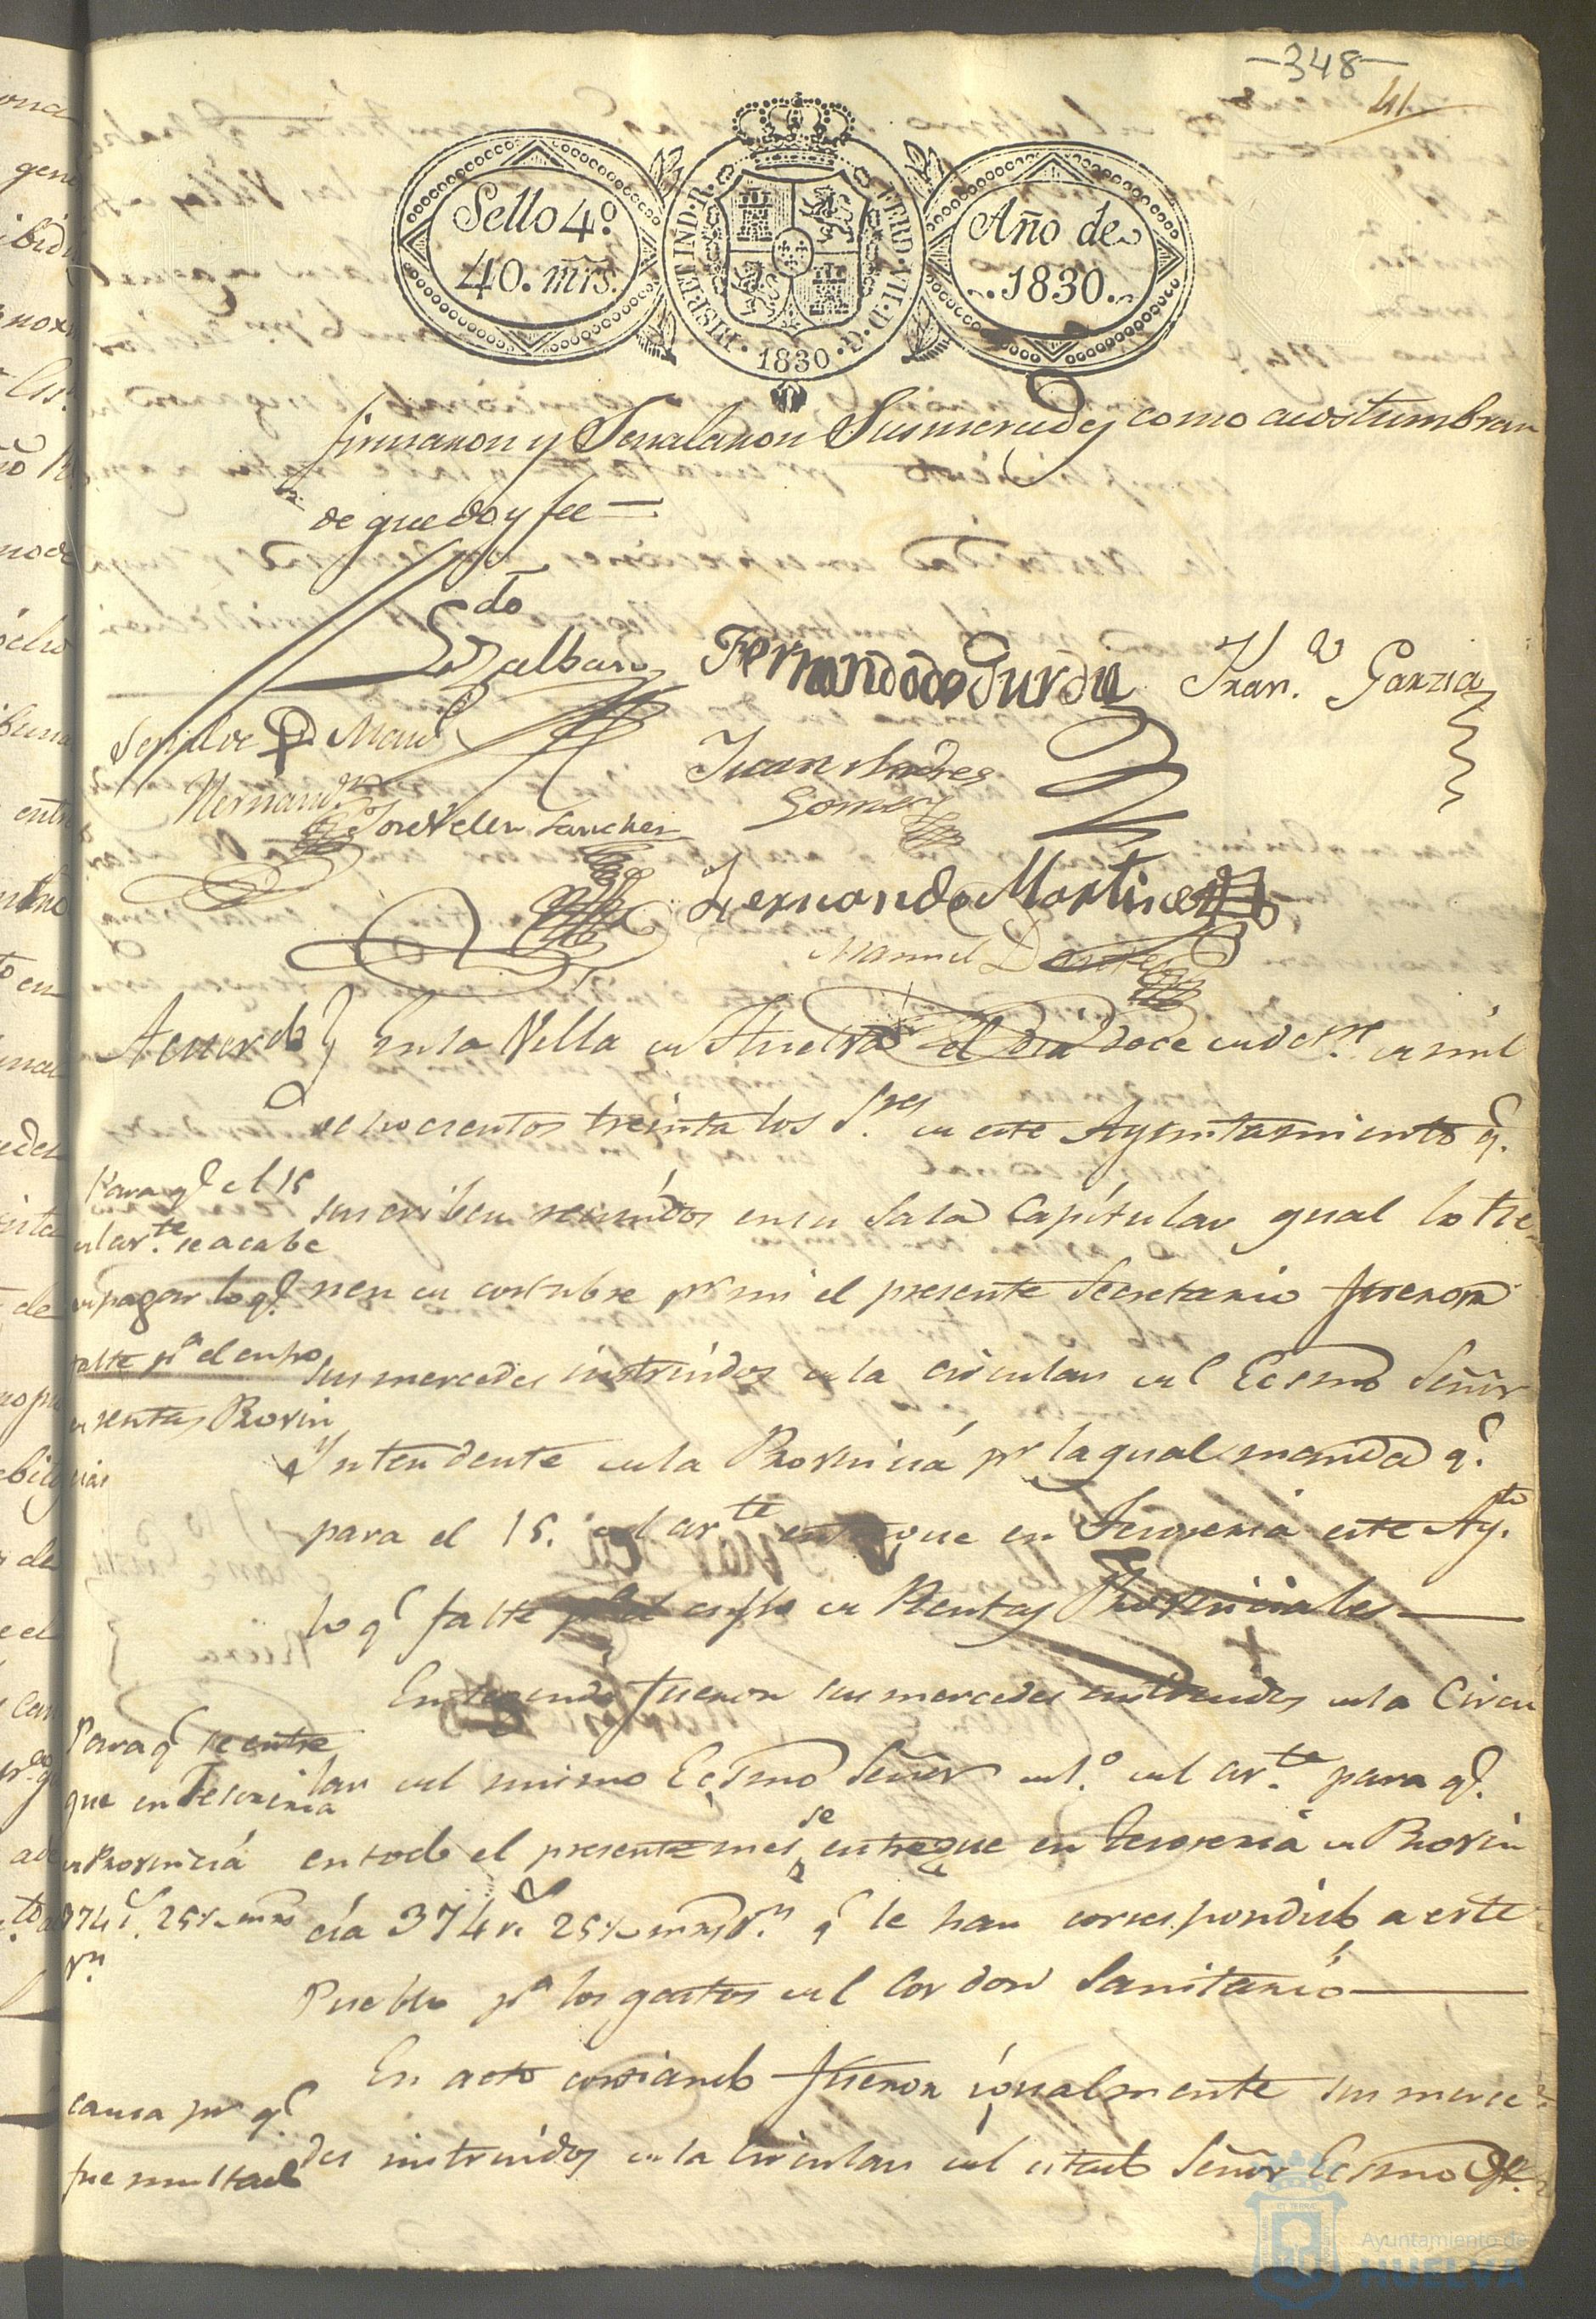 -348-
41
Sello 4º.
40. mrs.
HISPET IND. R.
FERD. VII. D. G.
1830
Año de
1830.
firmaron y Señalaron Susmercedes como acostumbran
de que doy fee =
Ldo
Balbuen
Fernando de
Franco Garzia
Señal de Manl
Hernandz
Juan Andres
Gomez
Jose Velez Sanchez
Fernando Martinez
Manuel
Acuerdo } En la Villa de Huelva el dia doce de Octre de mil
ochocientos treinta los Sres de este Ayuntamiento q.
suscriben reunidos en su Sala Capitular qual lo tie-
nen de costubre pr mi el presente Secretario fueron
sus mercedes instruidos de la circular del Ecsmo Señor
Yntendente de la Provincia pr la qual manda q.
para el 15. del corte entregue en Tesoreria este Ayto
lo q. falte pa el cupo de Rentas Provinciales
Para q. el 15
del corte se acabe
de pagar lo q.
falte pa el cupo
de rentas Provin
cias
En seguida fueron sus mercedes instruidos de la Circu
lar del mismo Ecsmo Señor del corte para q.
en todo el presente mes se entregue en Tesoreria de Provin
cia 374 rs 25 mrs vn q. le han correspondido a este
Pueblo pa los gastos del Cordon Sanitario
Para q. se entre
gue en Tesoreria
de Provincia
374 rs. 25 mrs
vn
En acto continuado fueron igualmente sus merce-
des instruidos de la Circular del citado Señor Ecsmo
causa pr q.
fue multado
Ayuntamiento de
HUELVA